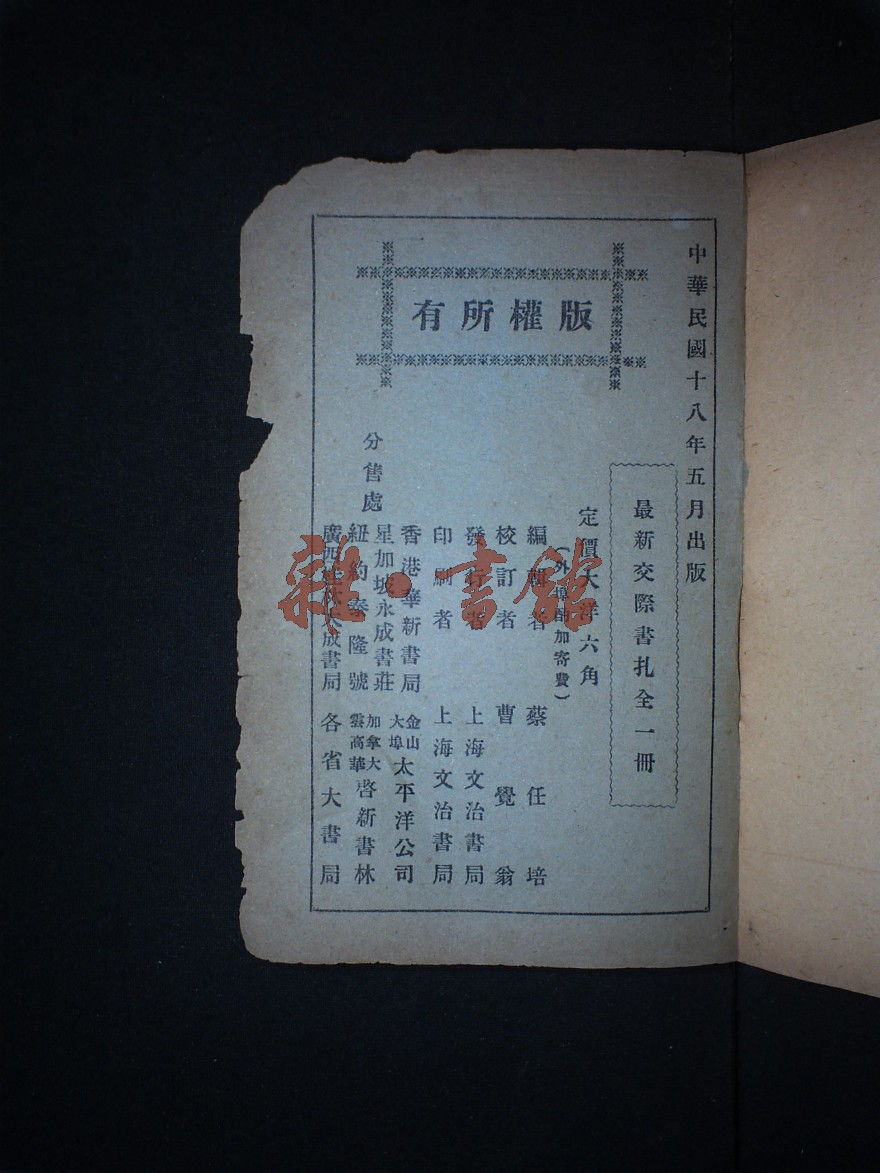 中華民國十八年五月出版
最新交際書扎全一冊
定價大洋六角
(外埠酌加寄費)
編輯者 蔡任培
校訂者 曹覺翁
發行者 上海文治書局
印刷者 上海文治書局
分售處
香港華新書局
星加坡永成書莊
紐約泰隆號
廣西桂林大成書局
金山大埠太平洋公司
加拿大雲高華啓新書林
各省大書局
有所權版
雜·書館